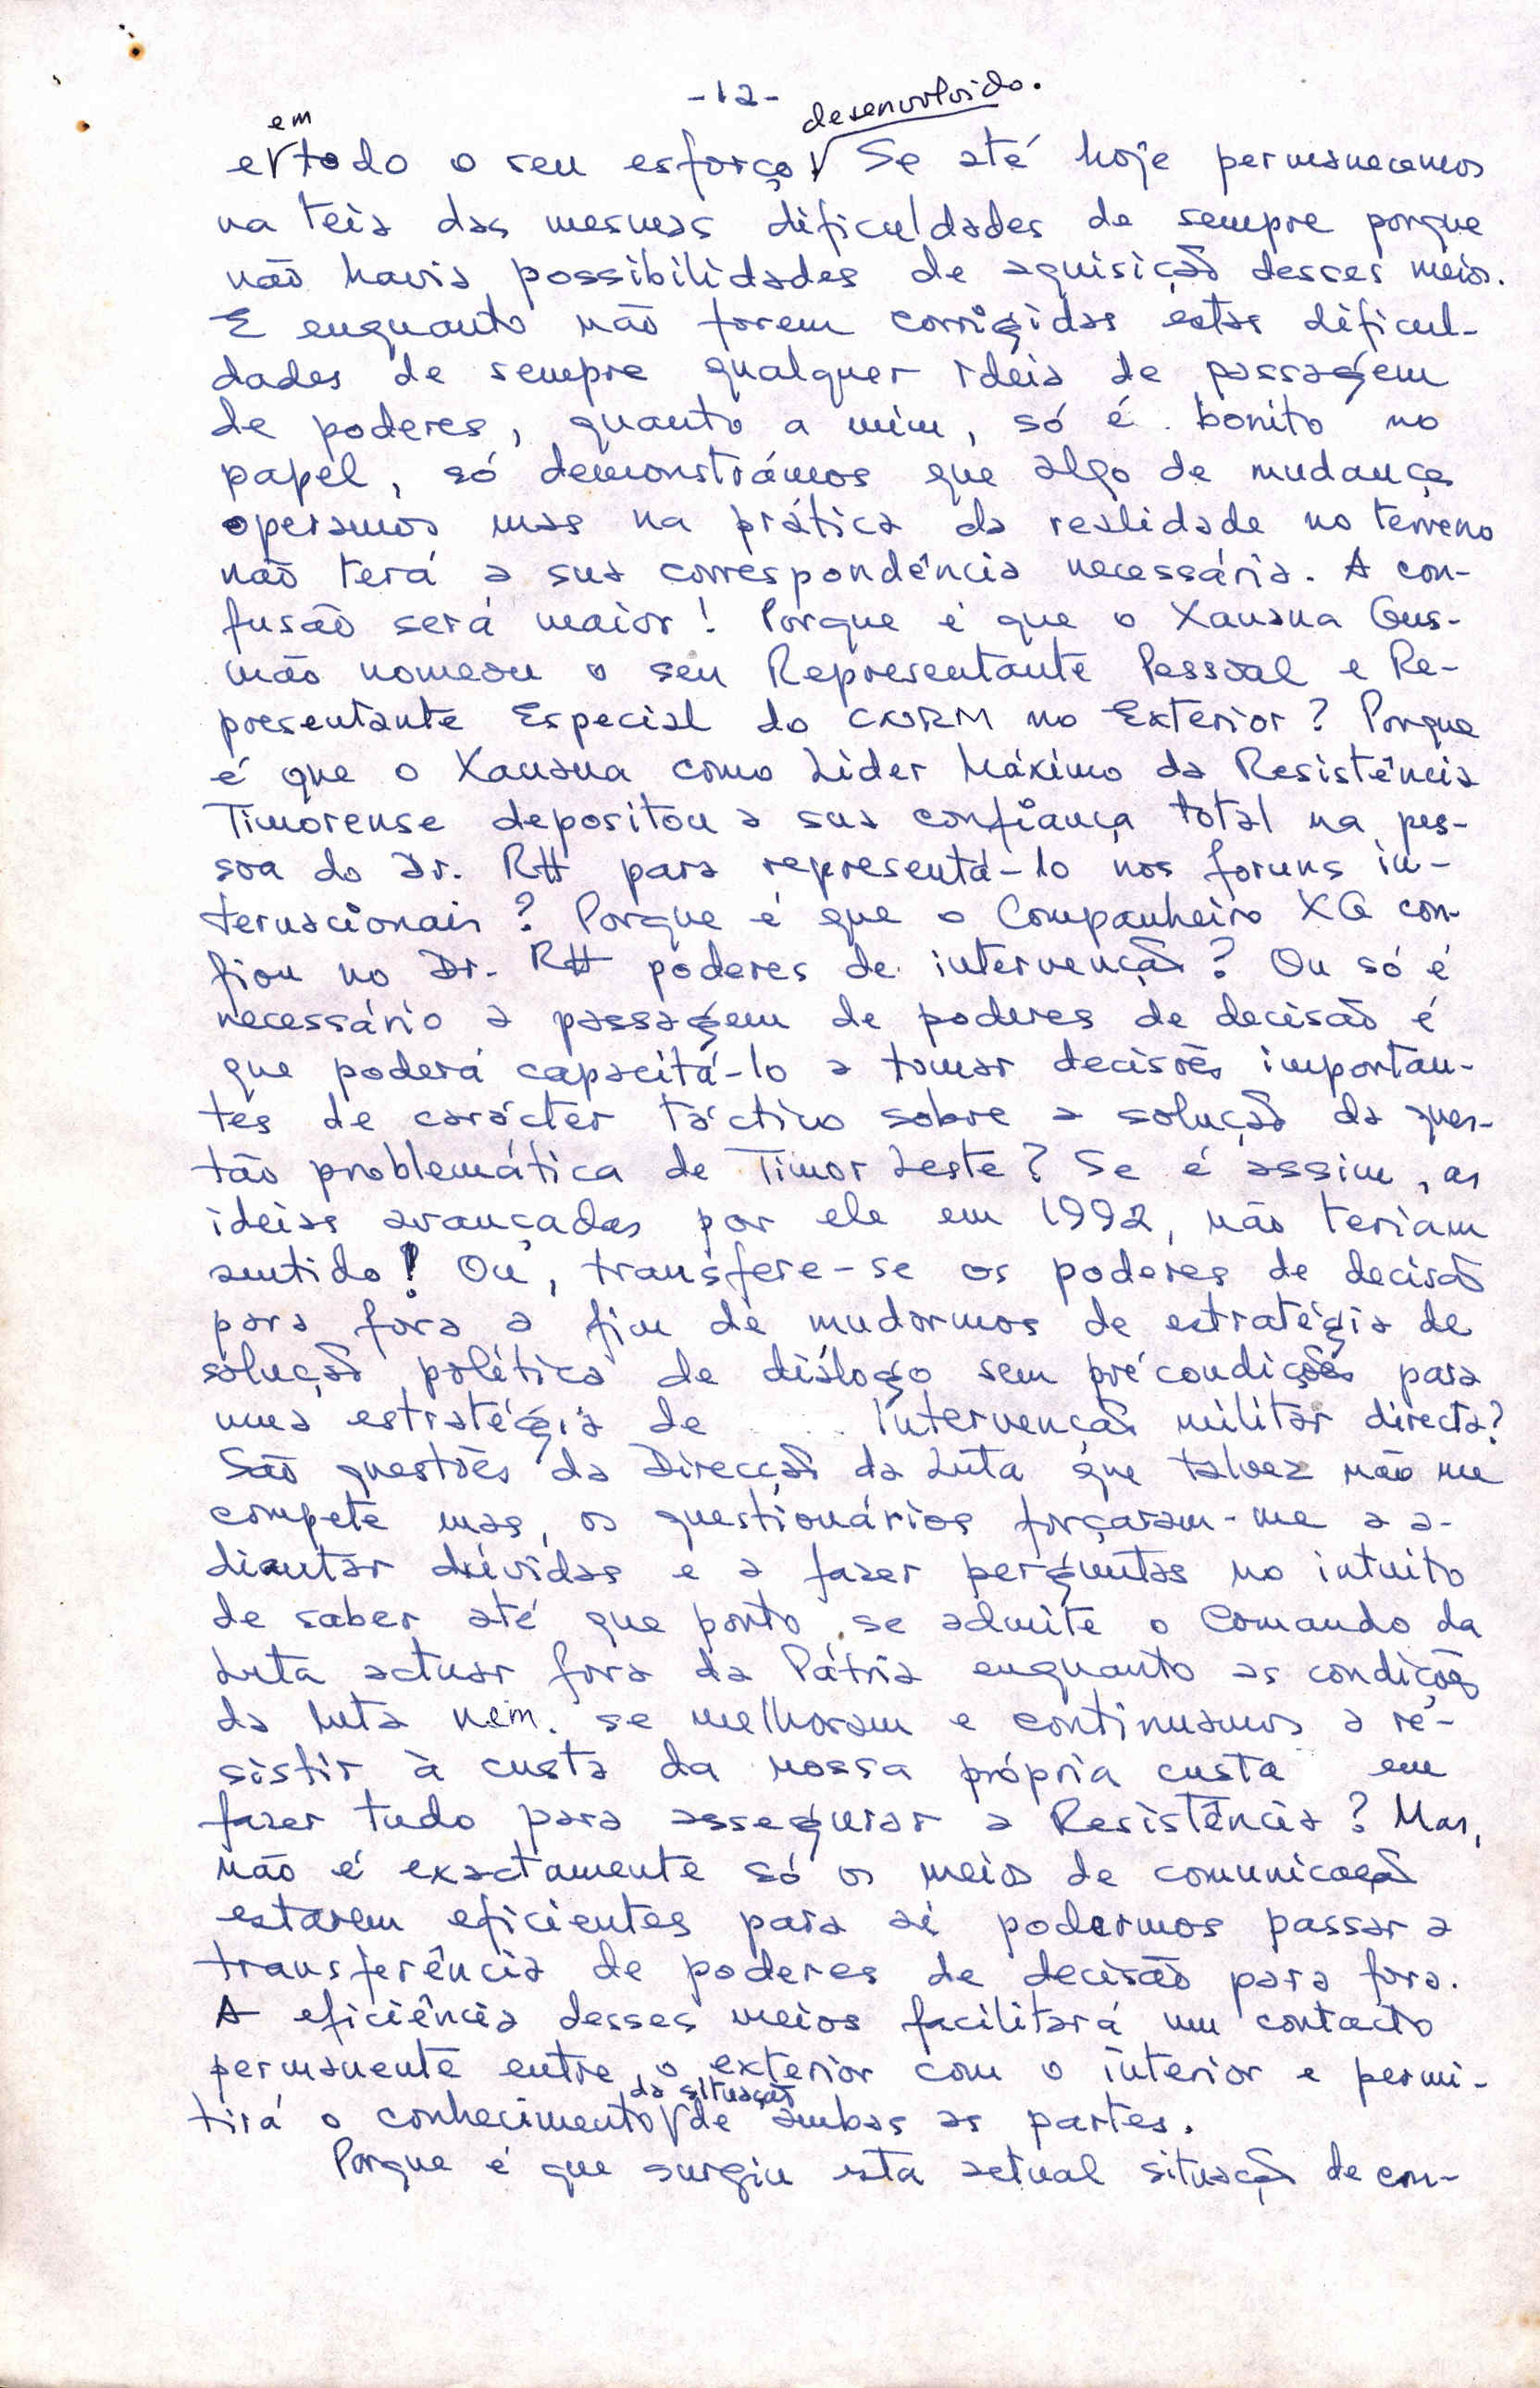 -12-
e em todo o seu esforço desenvolvido. Se até hoje permanecemos
na teia das mesmas dificuldades de sempre porque
não havia possibilidades de aquisição desses meios.
E enquanto não forem corrigidas estas dificul-
dades de sempre qualquer ideia de passagem
de poderes, quanto a mim, só é bonito no
papel, só demonstrámos que algo de mudança
operamos mas na prática da realidade no terreno
não terá a sua correspondência necessária. A con-
fusão será maior! Porque é que o Xanana Gus-
mão nomeou o seu Representante Pessoal e Re-
presentante Especial do CNRM no Exterior? Porque
é que o Xanana como Líder Máximo da Resistência
Timorense depositou a sua confiança total na pes-
soa do Dr. RH para representá-lo nos foruns in-
ternacionais? Porque é que o Companheiro XG con-
fiou no Dr. RH poderes de intervenção? Ou só é
necessário a passagem de poderes de decisão é
que poderá capacitá-lo a tomar decisões importan-
tes de carácter táctico sobre a solução da ques-
tão problemática de Timor Leste? Se é assim, as
ideias avançadas por ele em 1992, não teriam
sentido! Ou, transfere-se os poderes de decisão
para fora a fim de mudarmos de estratégia de
solução política de diálogo sem précondições para
uma estratégia de ..... intervenção militar directa?
São questões da Direcção da Luta que talvez não me
compete mas, os questionários forçaram-me a a-
diantar dúvidas e a fazer perguntas no intuito
de saber até que ponto se admite o Comando da
Luta actuar fora da Pátria enquanto as condições
da luta nem se melhoram e continuamos a re-
sistir à custa da nossa própria custa em
fazer tudo para assegurar a Resistência? Mas,
não é exactamente só os meios de comunicação
estarem eficientes para aí podermos passar a
transferência de poderes de decisão para fora.
A eficiência desses meios facilitará um contacto
permanente entre o exterior com o interior e permi-
tirá o conhecimento da situação de ambas as partes.
Porque é que surgiu esta actual situação de con-